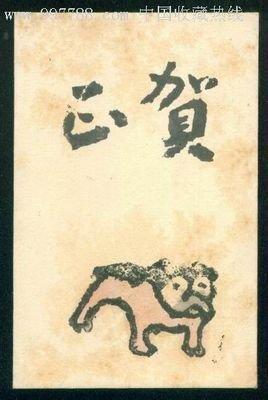 www.997788.com 中国收藏热线
賀正